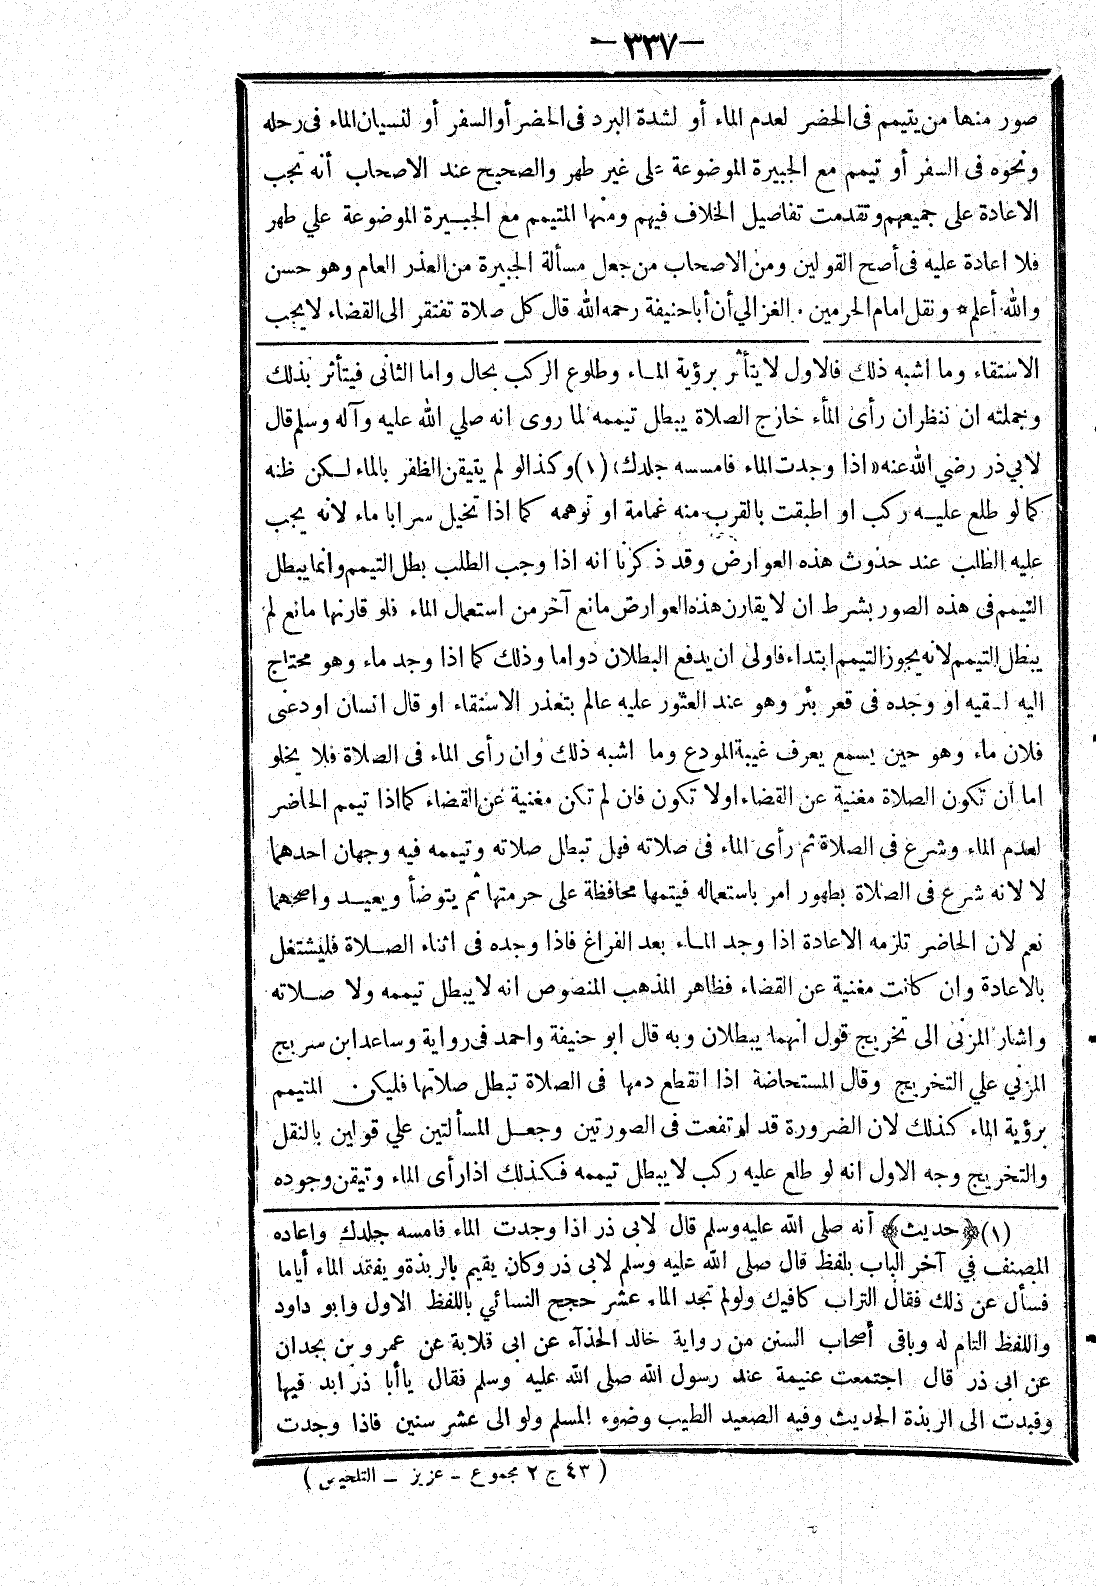 -٣٣٧-
صور منها من يتيمم فى الحضر لعدم الماء أو لشدة البرد فى الحضر أو السفر أو لنسيان الماء فى رحله
ونحوه فى السفر أو تيمم مع الجبيرة الموضوعة على غير طهر والصحيح عند الاصحاب أنه تجب
الاعادة على جميعهم وتقدمت تفاصيل الخلاف فيهم ومنها المتيمم مع الجبيرة الموضوعة علي طهر
فلا اعادة عليه فى أصح القولين ومن الاصحاب من جعل مسألة الجبيرة من العذر العام وهو حسن
والله أعلم * ونقل امام الحرمين . الغزالي أن أبا حنيفة رحمه الله قال كل صلاة تفتقر الى القضاء لا يجب
الاستقاء وما اشبه ذلك فالاول لا يتأثر برؤية الماء وطلوع الركب بحال واما الثانى فيتأثر بذلك
وجملته ان ننظر ان رأى الماء خارج الصلاة يبطل تيممه لما روى انه صلي الله عليه وآله وسلم قال
لابي ذر رضي الله عنه «اذا وجدت الماء فامسسه جلدك» (١) وكذا لو لم يتيقن الظفر بالماء لكن ظنه
كما لو طلع عليه ركب او اطبقت بالقرب منه غمامة او توهمه كما اذا تخيل سرابا ماء لانه يجب
عليه الطلب عند حدوث هذه العوارض وقد ذكرنا انه اذا وجب الطلب بطل التيمم وانما يبطل
التيمم فى هذه الصور بشرط ان لا يقارن هذه العوارض مانع آخر من استعمال الماء فلو قارنها مانع لم
يبطل التيمم لانه يجوز التيمم ابتداء فاولى ان يدفع البطلان دواما وذلك كما اذا وجد ماء وهو محتاج
اليه لسقيه او وجده فى قعر بئر وهو عند العثور عليه عالم بتعذر الاستقاء او قال انسان اودعنى
فلان ماء وهو حين يسمع يعرف غيبة المودع وما اشبه ذلك وان رأى الماء فى الصلاة فلا يخلو
اما أن تكون الصلاة مغنية عن القضاء اولا تكون فان لم تكن مغنية عن القضاء كما اذا تيمم الحاضر
لعدم الماء وشرع فى الصلاة ثم رأى الماء فى صلاته فهل تبطل صلاته وتيممه فيه وجهان احدهما
لا لانه شرع فى الصلاة بطهور امر باستعماله فيتمها محافظة على حرمتها ثم يتوضأ ويعيد واصحهما
نعم لان الحاضر تلزمه الاعادة اذا وجد الماء بعد الفراغ فاذا وجده فى اثناء الصلاة فليشتغل
بالاعادة وان كانت مغنية عن القضاء فظاهر المذهب المنصوص انه لا يبطل تيممه ولا صلاته
واشار المزنى الى تخريج قول انهما يبطلان وبه قال ابو حنيفة واحمد فى رواية وساعد ابن سريج
المزني علي التخريج وقال المستحاضة اذا انقطع دمها فى الصلاة تبطل صلاتها فليكن المتيمم
برؤية الماء كذلك لان الضرورة قد ارتفعت فى الصورتين وجعل المسألتين علي قولين بالنقل
والتخريج وجه الاول انه لو طلع عليه ركب لا يبطل تيممه فكذلك اذا رأى الماء وتيقن وجوده
(١) ﴿حديث﴾ أنه صلى الله عليه وسلم قال لابى ذر اذا وجدت الماء فامسه جلدك واعاده
المصنف في آخر الباب بلفظ قال صلى الله عليه وسلم لابى ذر وكان يقيم بالربذة ويفتقد الماء أياما
فسأل عن ذلك فقال التراب كافيك ولو لم تجد الماء عشر حجج النسائي باللفظ الاول وابو داود
واللفظ التام له وباقى أصحاب السنن من رواية خالد الحذآء عن ابى قلابة عن عمرو بن بجدان
عن ابى ذر قال اجتمعت غنيمة عند رسول الله صلى الله عليه وسلم فقال يا أبا ذر ابد فيها
وفبدت الى الربذة الحديث وفيه الصعيد الطيب وضوء المسلم ولو الى عشر سنين فاذا وجدت
( ٤٣ ج ٢ مجموع - عزيز - التلخيص )